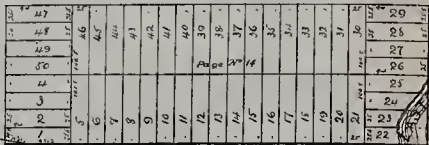 47
48
49
50
4
3
2
1
46 45 44 43 42 41 40 39 38 37 36 35 34 33 32 31 30
Page Nº 14
5 6 7 8 9 10 11 12 13 14 15 16 17 18 19 20 21
29
28
27
26
25
24
23
22